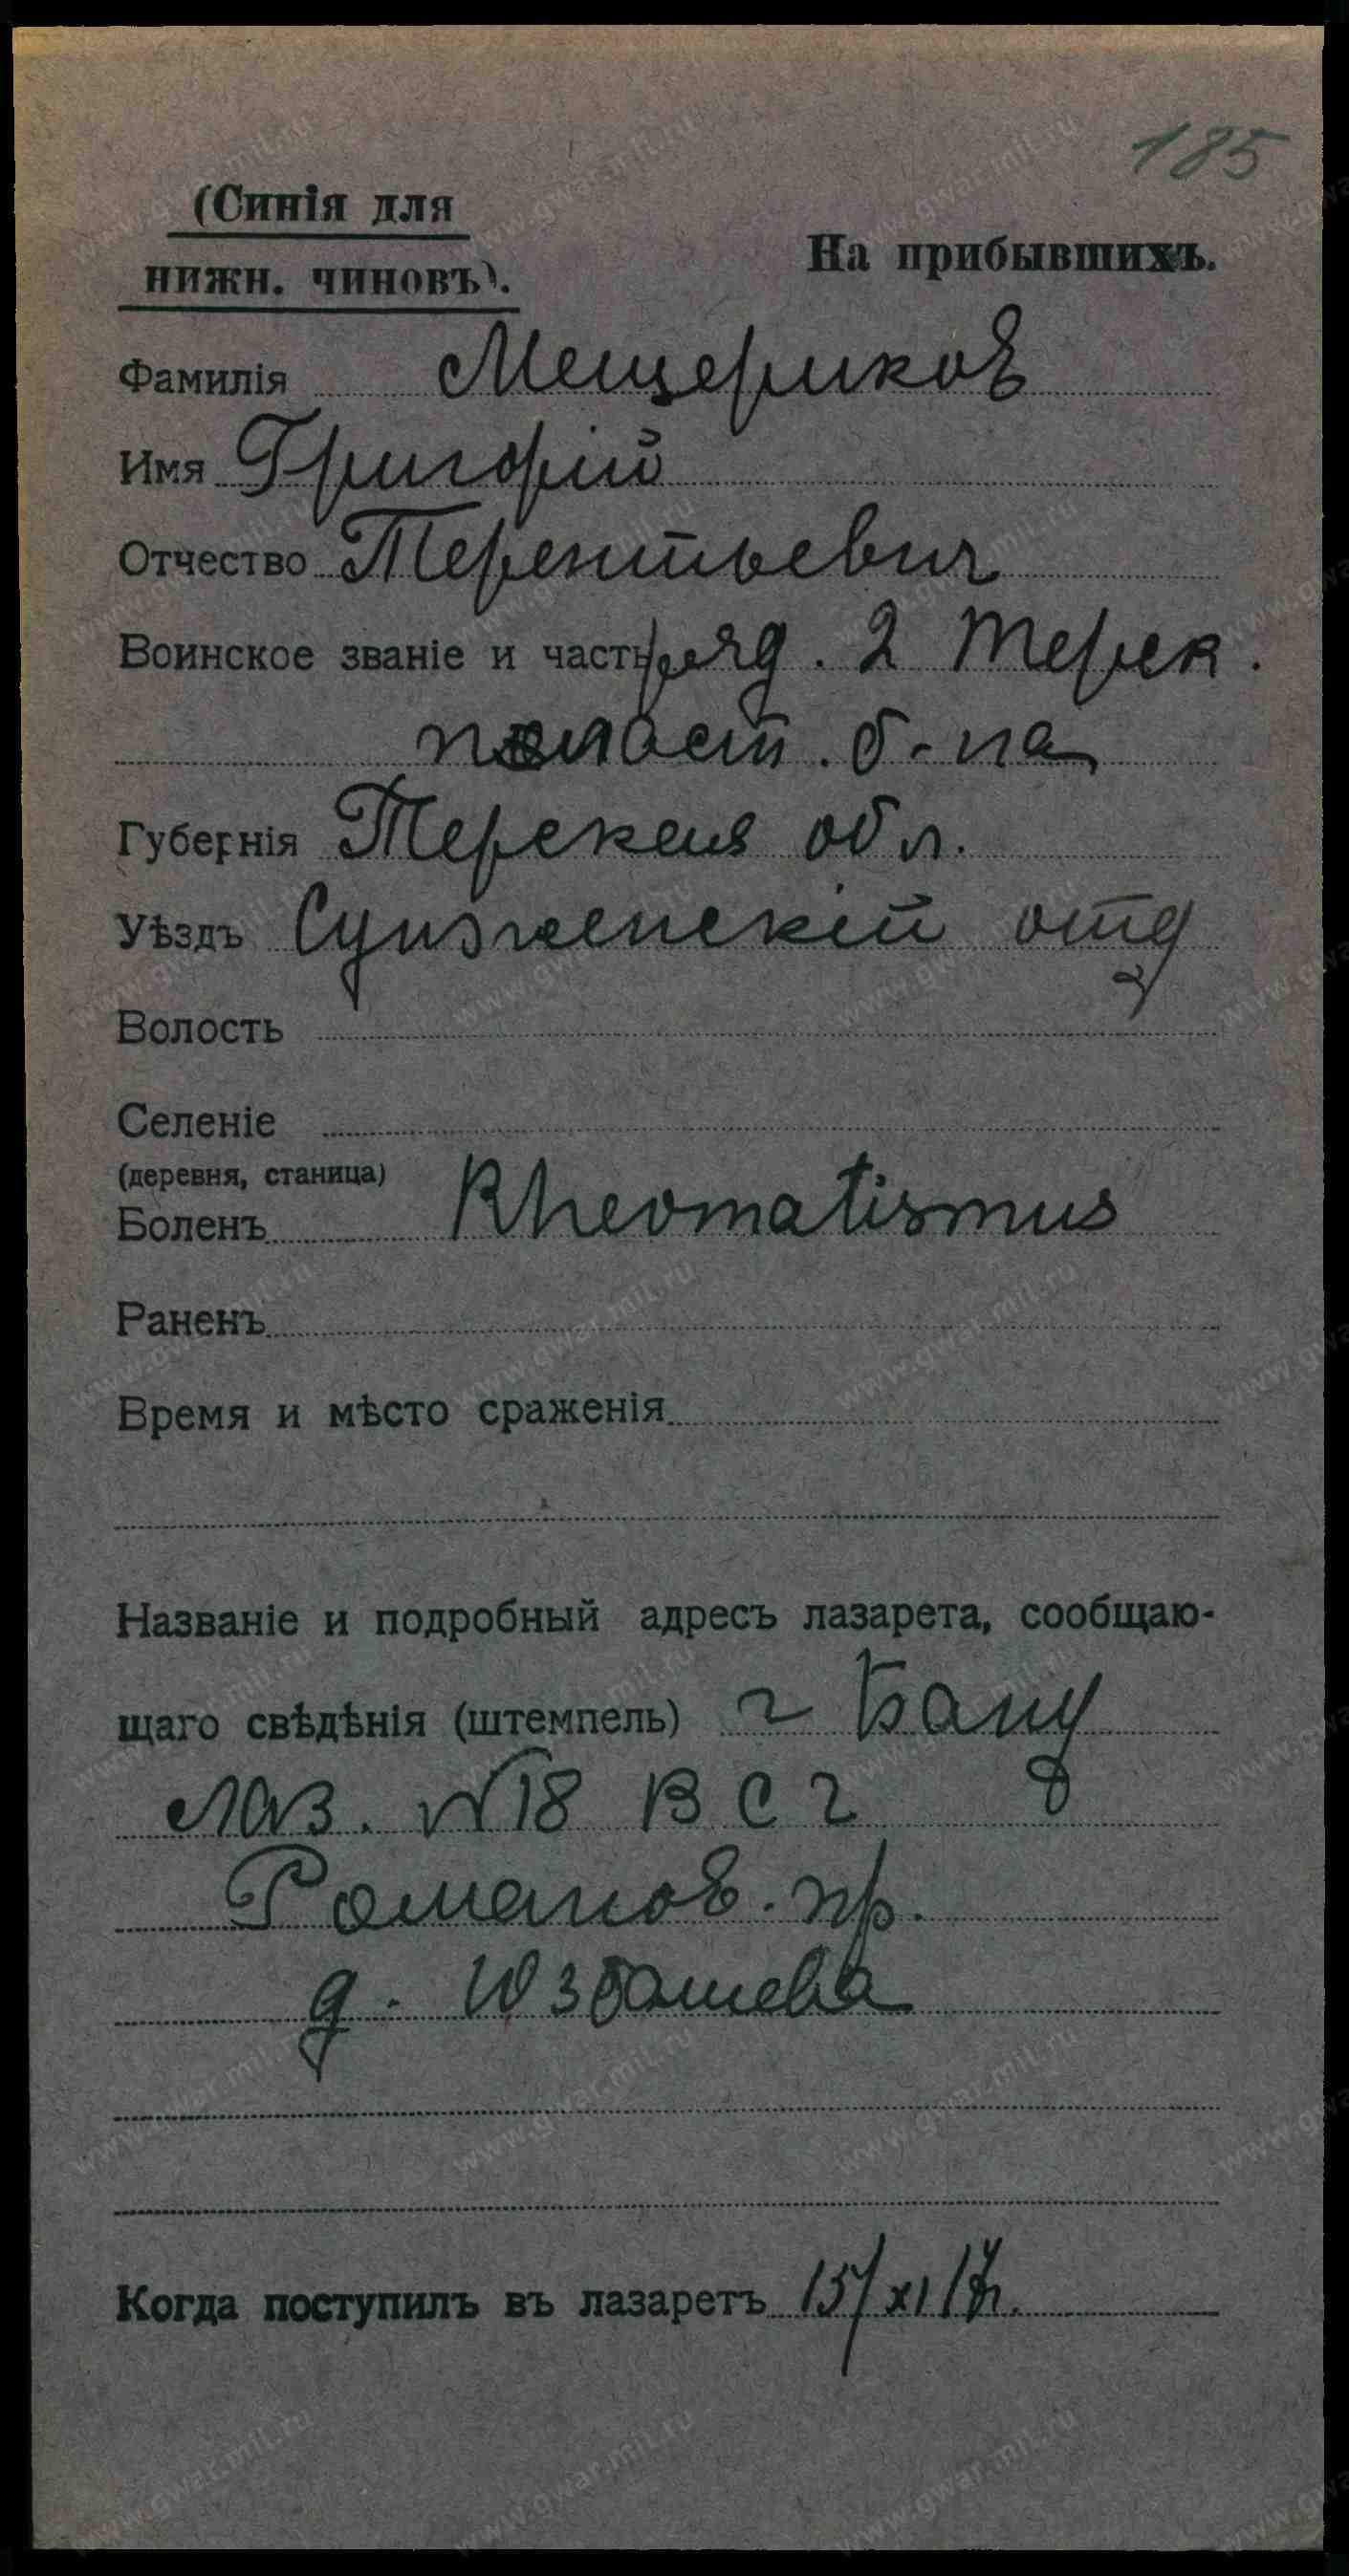 185
(Синія для
нижн. чиновъ).
На прибывшихъ.
Фамилія Мещериков
Имя Григорій
Отчество Терентьевич
Воинское званіе и часть ряд. 2 Терек.
пласт. б-на
Губернія Терская обл.
Уѣздъ Сунженскій отд
Волость
Селеніе
(деревня, станица)
Боленъ Rheomatismus
Раненъ
Время и мѣсто сраженія
Названіе и подробный адресъ лазарета, сообщаю-
щаго свѣдѣнія (штемпель) г Баку
лаз. №18 В С Г
Романов. пр.
д. Юзбашева
Когда поступилъ въ лазаретъ 15/XI 17г.